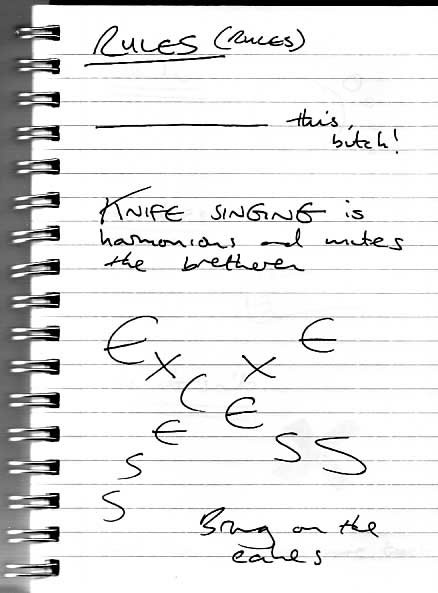 RULES (RULES)
__________ this,
butch!
KNIFE SINGING is
harmonious and mutes
the bretheren
E E
X X
C E
E S S
S
S
Bring on the